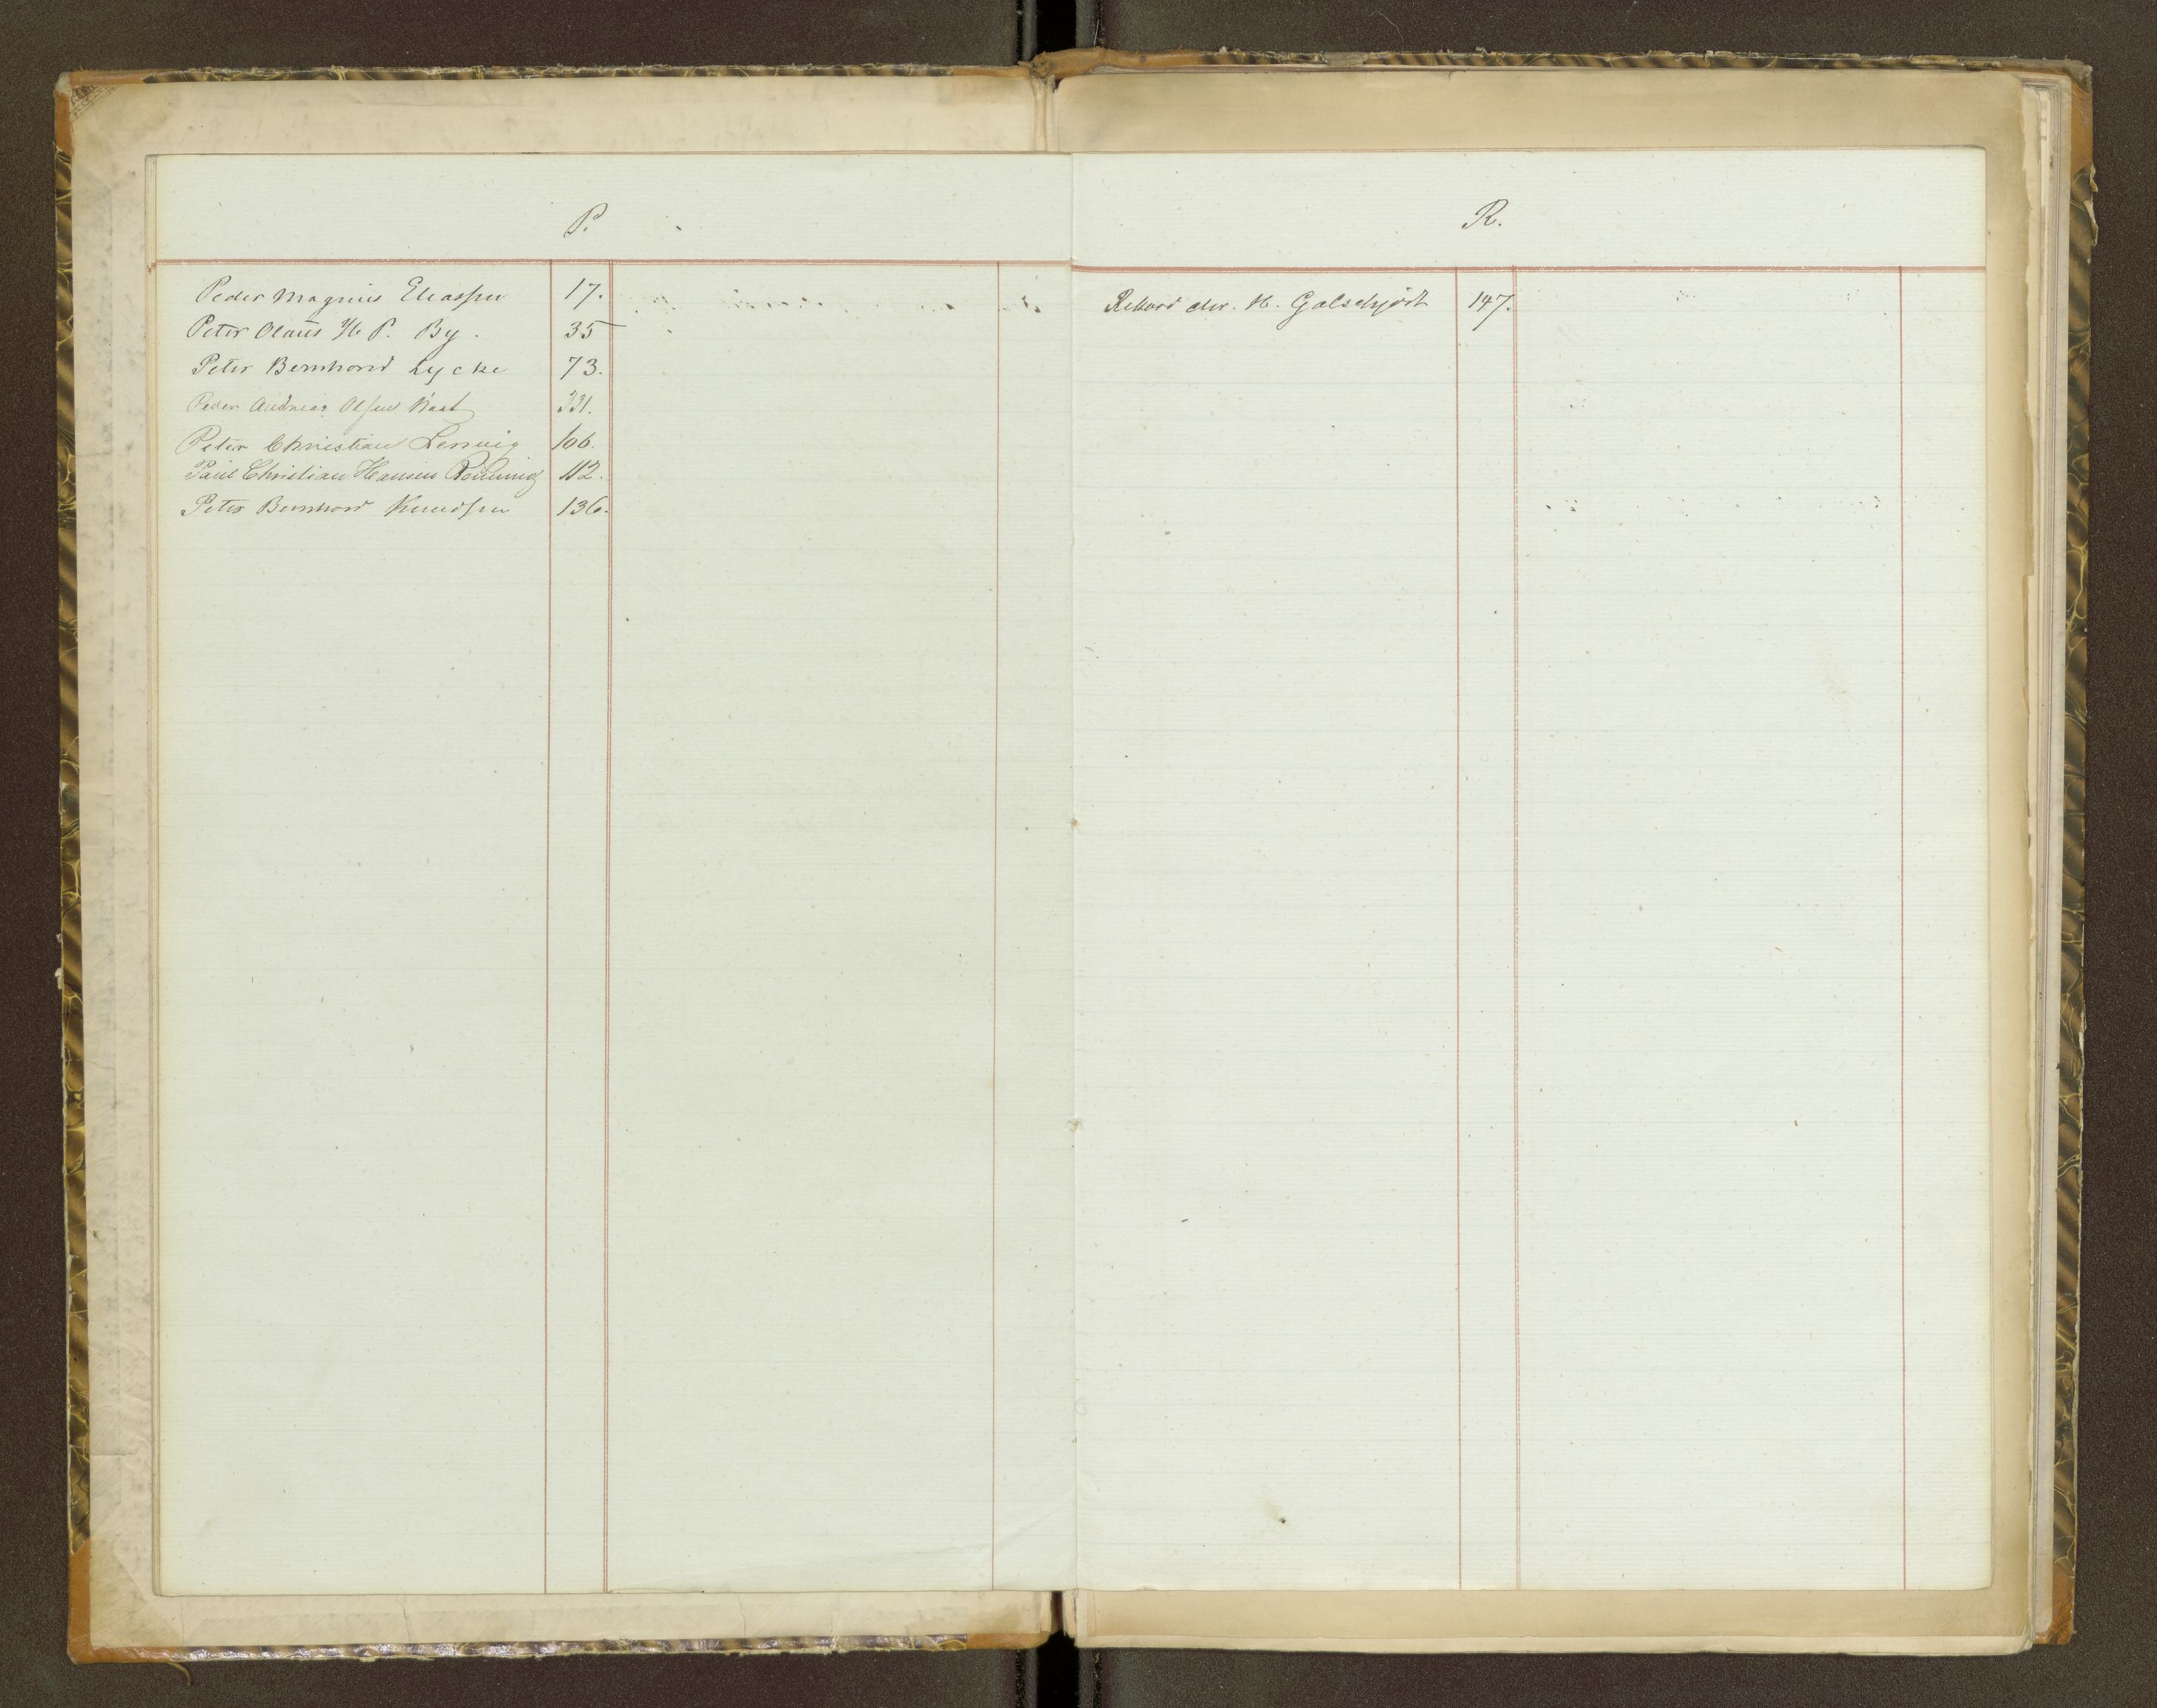 P.
Peder Magnus Eliassen 17.
Peter Olaus H. P. By. 35
Peter Bernhard Lycke 73.
Peder Andreas Olsen 331.
Peter Christian Lervig 106.
Paul Christian Hansen Rönning 112.
Peter Bernhard Knudsen 136.
R.
Rikard Chr. H. Galschjödt 147.